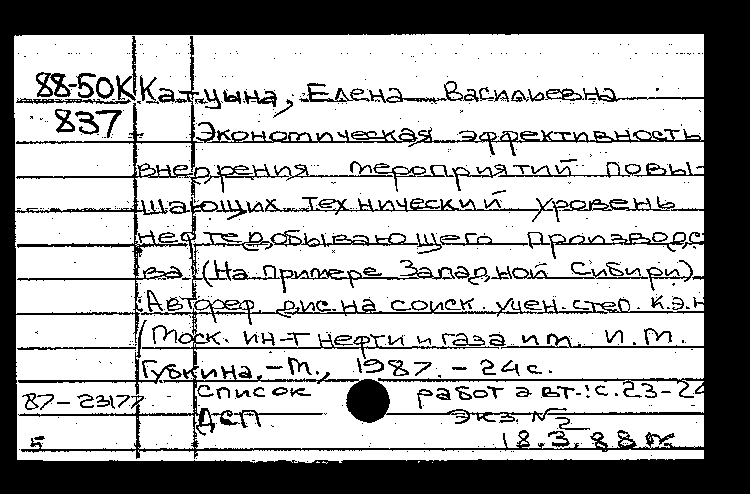 88-50К Катцына, Елена Васильевна
837 Экономическая эффективность
внедрения мероприятий повы-
шающих технический уровень
нефтедобывающего производс
ва (На примере Западной Сибири)
Автореф. дис. на соиск. учен. степ. к.э.н
(Моск. ин-т нефти и газа им. И.М.
Губкина. - М., 1987. - 24 с.
87-23177 список работ авт.: с. 23-24
ДСП экз. №2
5 18.3.88